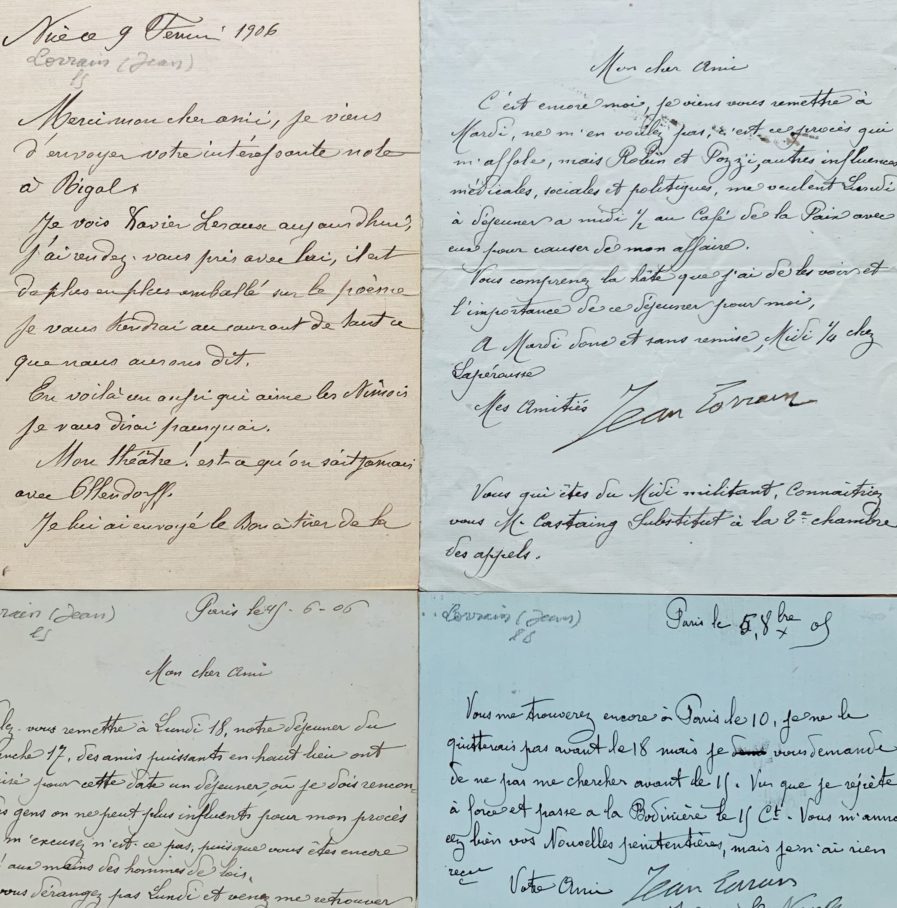 Nice 9 Fevrier 1906
Lorrain (Jean)
Merci mon cher ami, je viens
d'envoyer votre intéressante note
à Rigal
Je vois Xavier Leroux aujourdhui,
j'ai rendez-vous pris avec lui, il est
de plus en plus emballé sur le poème
je vous tiendrai au courant de tout ce
que nous aurons dit.
En voilà un aussi qui aime les Nimois
je vous dirai pourquoi.
Mon théâtre! est-ce qu'on sait jamais
avec Ollendorff.
Je lui ai envoyé le Bon à tirer de la
Mon cher Ami
C'est encore moi, je viens vous remettre à
Mardi, ne m'en voulez pas, c'est ce procès qui
m'affole, mais Robin et Pozzi, autres influences
médicales, sociales et politiques, me veulent Lundi
à déjeuner a midi ½ au Café de la Paix avec
eux pour causer de mon affaire.
Vous comprenez la hâte que j'ai de les voir et
l'importance de ce déjeuner pour moi,
A Mardi donc et sans remise, Midi ¼ chez
Lapérousse
Mes Amitiés Jean Lorrain
Vous qui êtes du Midi militant, Connaitriez
vous M. Castaing Substitut à la 2e chambre
des appels.
rrain (Jean)
Paris le 15-6-06
Mon cher Ami
lez-vous remettre à Lundi 18, notre déjeuner du
anche 17, des amis puissants en haut lieu ont
pour cette date un déjeuner où je dois rencon-
gens on ne peut plus influents pour mon procès
m'excusez n'est-ce pas, puisque vous êtes encore
aux mains des hommes de loi.
vous dérangez pas Lundi et venez me retrouver
Lorrain (Jean)
Paris le 5, 8bre 05
Vous me trouverez encore à Paris le 10, je ne le
quitterais pas avant le 18 mais je vous demande
de ne pas me chercher avant le 15. Vu que je répète
à force et passe a la Bodinière le 15 Ct. Vous m'anno
cez bien vos Nouvelles penitentières, mais je n'ai rien
reçu
Votre Ami Jean Lorrain